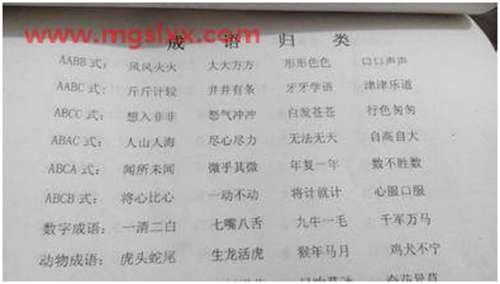 www.mgslxx.com
成语归类
AABB式: 风风火火 大大方方 形形色色 口口声声
AABC式: 斤斤计较 井井有条 牙牙学语 津津乐道
ABCC式: 想入非非 怒气冲冲 白发苍苍 行色匆匆
ABAC式: 人山人海 尽心尽力 无法无天 自高自大
ABCA式: 闻所未闻 微乎其微 年复一年 数不胜数
ABCB式: 将心比心 一动不动 将计就计 心服口服
数字成语: 一清二白 七嘴八舌 九牛一毛 千军万马
动物成语: 虎头蛇尾 生龙活虎 猴年马月 鸡犬不宁